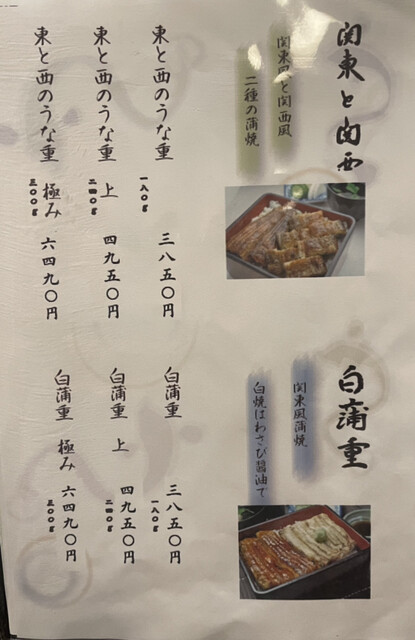 関東と関西
関東風と関西風
二種の蒲焼
東と西のうな重
一八〇g
三八五〇円
東と西のうな重
上
二四〇g
四九五〇円
東と西のうな重
極み
三〇〇g
六四九〇円
白蒲重
関東風蒲焼
白焼はわさび醤油で
白蒲重
三八五〇円
一八〇g
白蒲重 上
四九五〇円
二四〇g
白蒲重 極み
六四九〇円
三〇〇g